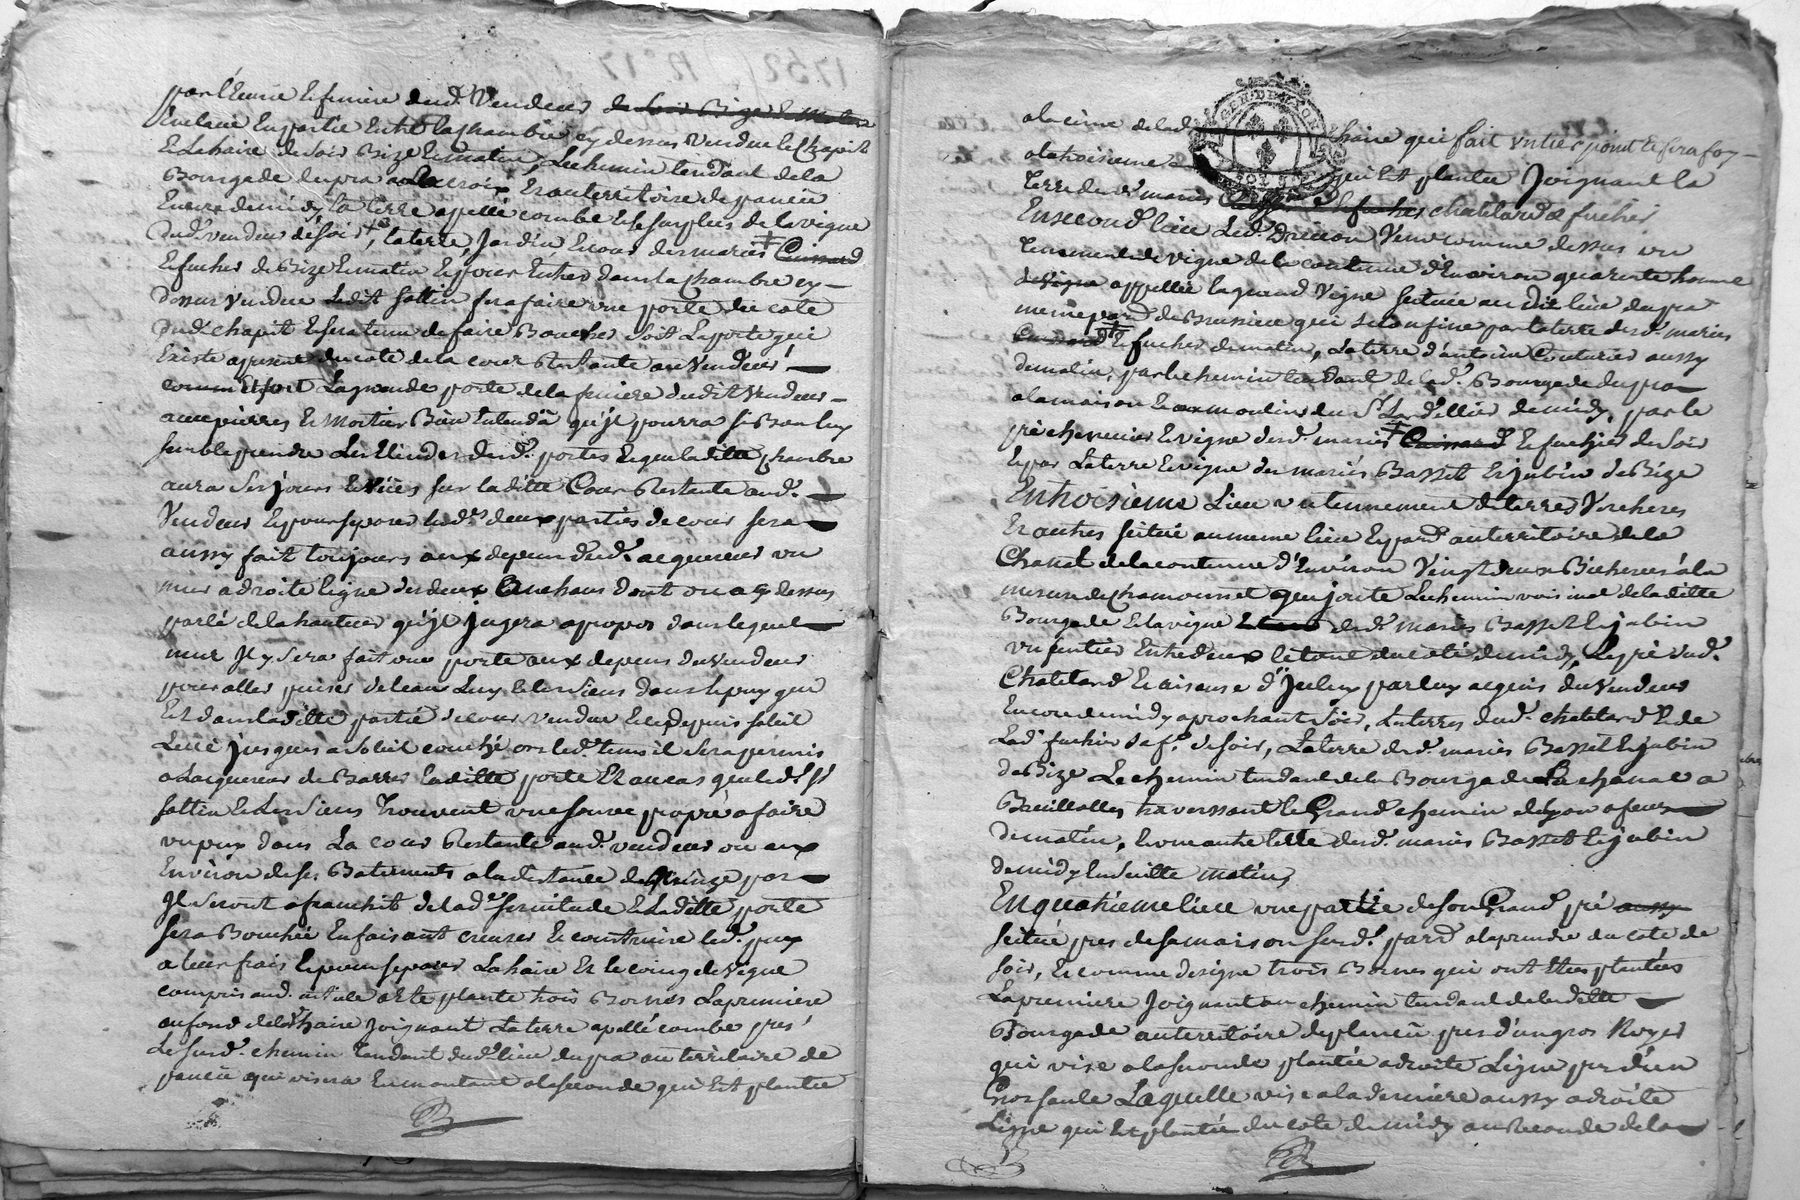 par l'Ecurie et feniere dud. Vendeur
Enclavé En partie Entre la chambre cy dessus vendue le Chapit
Et La haire de soir Bize Et matin, Le chemin tendant de la
Bourgade du pra a La croix Et au territoire de
la terre apellé combe Et le surplus de la vigne
dud. vendeur de soir, la terre, Jardin des mariés Cuissard
Et fuches de Bize Et matin Et pour Entrer dans la chambre cy
dessus vendue Ledit sottin fera faire une porte du coté
dud. chapit Et sera tenu de faire Boucher soit La porte qui
Existe apresent du coté de la cour Restante au Vendeur
comm Et fort La grande porte de la feniere dudit vendeur
avec pierres Et Mortier Bien Entendu qu'jl pourra si Bon luy
semble prendre Les des d. portes Et que laditte chambre
aura ses jours Et vües sur laditte Cour Restante aud.
Vendeur Et pour separer lesd. deux parties de cour sera
aussy fait toujours aux depens dud. acquereur un
mur a droite ligne des deux dont on a cy dessus
parlé de la hauteur qu'jl jugera apropos dans lequel
mur Jl y sera fait une porte aux depens du vendeur
pour aller puiser de leau Luy Et les siens dans le puy qui
Est dans laditte partie de cour vendue Et ce depuis soleil
Levé jusques a soleil couché led. tems il sera permis
a Lacquereur de Barrer laditte porte Et au cas que led. Sr.
sottin Et Les siens trouvent une source propre a faire
un puy dans La cour Restante aud. vendeur ou aux
Environ de ses Batiments a la distance de
Jls seront afranchit de lad. servitude Et Laditte porte
sera Bouchée En faisant creuser Et construire led. puy
a leur frais Et pour separer La haire Et le coing de vigne
compris aud. article a Eté planté trois Bornes La premiere
au fond de la d. haire joignant La terre apellé combe près
Le susd. chemin Tendant dud. lieu du pra au territoire de
qui visera En montant a la seconde qui Est plantée
a la cime de lad. haire qui fait
a la troisieme qui Est plantée Joignant la
Terre desd. mariés Et fuches chatelard & fuches
En second lieu Led. Vend comme dessus un
Tenement de vigne de la contenue d'Environ quarente homme
appellée la grand Vigne scituée au dit lieu du pra
meme par. de Brussieu qui se confine par la terre desd. mariés
Cuissard Et fuches de matin, La terre d'antoine Couturier aussy
de matin, par le chemin tendant de lad. Bourgade du pra
a la maison Et aux moulins du Sr. de midy, par le
pré cheneviere Et vigne desd. mariés Cuissard Et fuchés de soir
Et par La terre Et vigne des mariés Basset Et jubin de Bize
En troisieme Lieu un tennement de terres Vercheres
Et autres scitué au meme lieu Et par. au territoire de la
Chanal de la contenue d'Environ Vingt deux Bicherées à la
mesure de Chamousset qui joute Le chemin voisinal de laditte
Bourgade Et la vigne desd. mariés Basset Et jubin
un sentier Entre deux le tout du coté de midy, Le pré dud.
Chatelard Et aisance d'Jceluy par luy acquis du vendeur
Encore de midy aprochant soir, La terres dud. chatelard & de
Lad. fuchés sa fe. de soir, La terre desd. mariés Basset Et jubin
de Bize Le chemin tendant de la Bourgade La chanal a
Breuillolles traversant le Grand chemin de Lyon a feurs
de matin, Encore autre terre desd. mariés Basset Et jubin
de midy Ensuitte matin,
En quatrieme lieu une partie de son Grand pré
scitué pres de sa maison susd. par. a la prendre du coté de
soir, Et comme designe trois Bornes qui ont Etées plantées
La premiere Joignant au chemin tendant de laditte
Bourgade au territoire de pres d'un gros Noyer
qui vise a la seconde plantée a droite Ligne pres d'un
Gros saule Laquelle vise a la derniere aussy a droite
Ligne qui Est plantée du coté de midy au de la
GEN. DE LYON